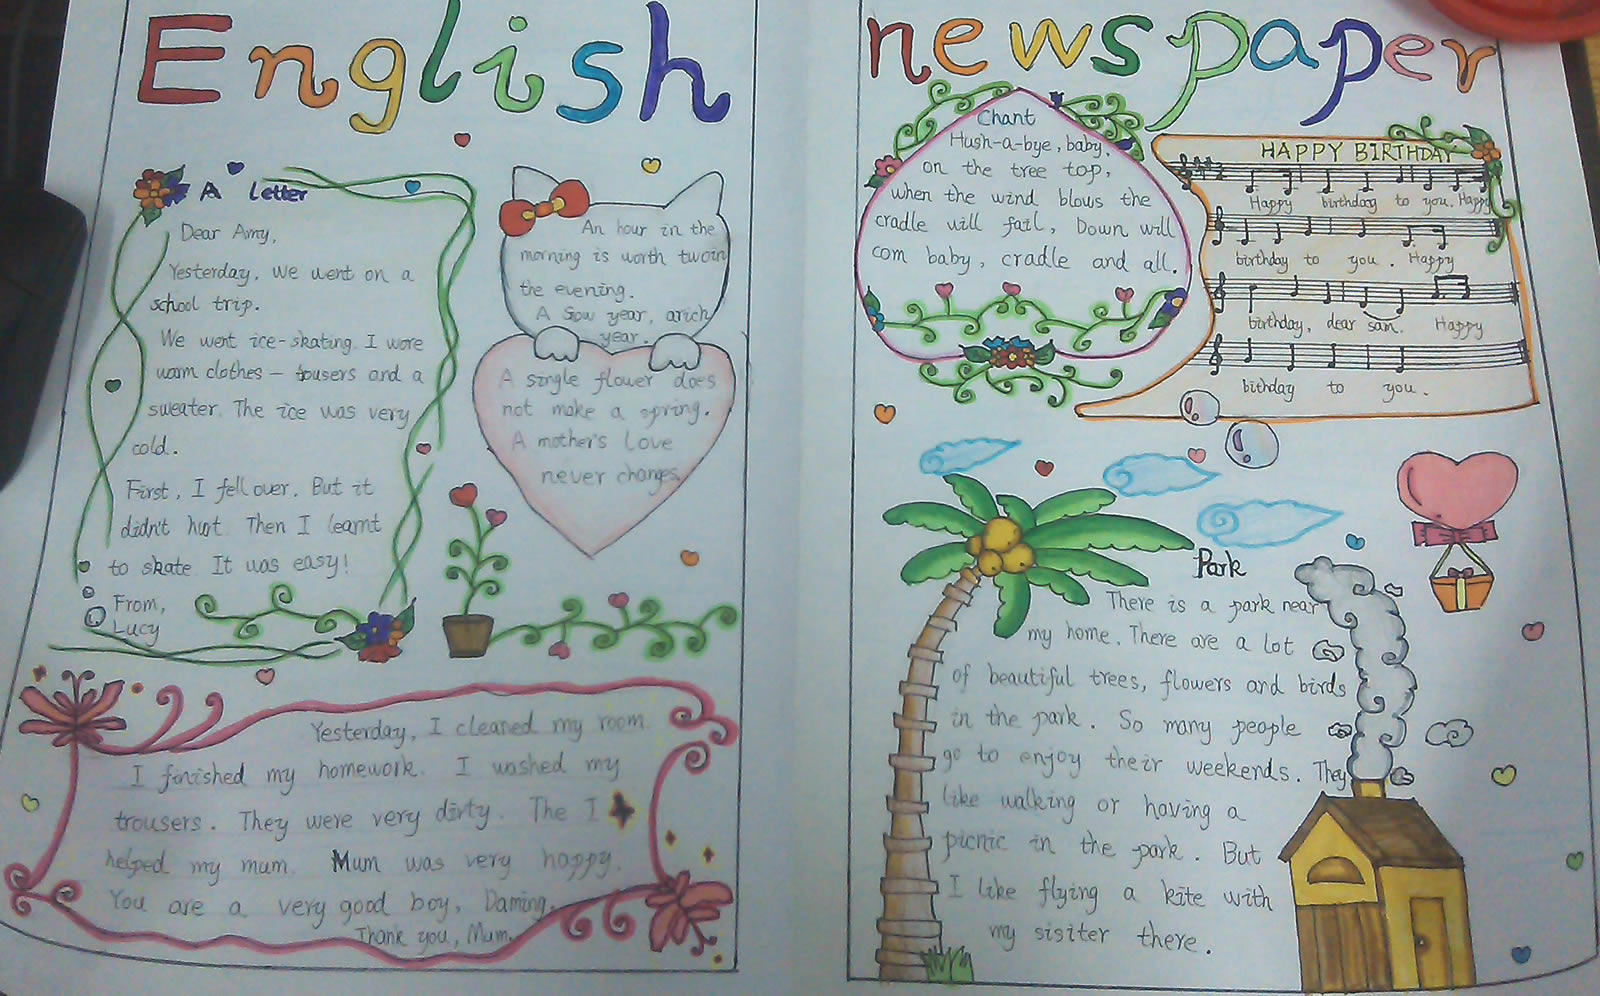 English newspaper
A Letter
Dear Amy,
Yesterday, we went on a
school trip.
We went ice-skating. I wore
warm clothes — tousers and a
sweater. The ice was very
cold.
First, I fell over. But it
didn't hurt. Then I learnt
to skate. It was easy!
From,
Lucy
An hour in the
morning is worth twoin
the evening.
A Snow year, arich
year.
A single flower does
not make a spring.
A mother's Love
never changes.
Yesterday, I cleaned my room.
I finished my homework. I washed my
trousers. They were very dirty. The I
helped my mum. Mum was very happy.
You are a very good boy, Daming.
Thank you, Mum.
Chant
Hush-a-bye, baby,
on the tree top,
when the wind blows the
cradle will fail, Down will
com baby, cradle and all.
HAPPY BIRTHDAY
Happy birthday to you. Happy
birthday to you. Happy
birthday, dear sam. Happy
bithday to you.
Park
There is a park near
my home. There are a lot
of beautiful trees, flowers and birds
in the park. So many people
go to enjoy their weekends. They
like walking or having a
picnic in the park. But
I like flying a kite with
my sisiter there.